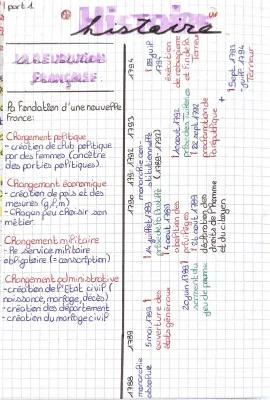 part 1
Histoire
histoire
LA REVOLUTION
FRANÇAISE
La Fondation d'une nouvelle
France:
Changement politique
- création de club politique
par des femmes (ancêtre
des parties politiques).
Changement économique
- création de pois et des
mesures (g, l, m)
- Chaqun peu choisir son
métier.
Changement militaire
- le service militaire
obligatoire (= conscription)
Changement administrative
- création de l'Etat civil (
naissance, mariage, décès)
- création des département
- création du mariage civil
1788
1789
1790
1791
1792
1793
1794
monarchie
absolue
5 mai 1789
ouverture des
états généraux
20 juin 1789
serment du
jeu de paume
14 juillet 1789
prise de la Bastille
4 août 1789
abolition des
privilèges
26 août 1789
déclaration des
droits de l'Homme
et du citoyen
monarchie con-
stitutionnelle
10 août 1792
prise des Tuileries
22 sept 1792
proclamation de
la république
28 juil
1794
exécution
de robespierre
et fin de la
Terreur
+
Sept 1793
- juil 1794
Terreur